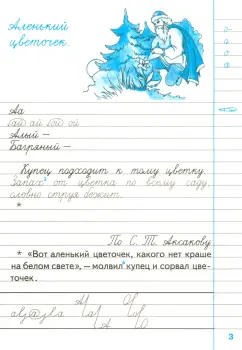 Аленький
цветочек
Аа
ай ай ой ой
Алый –
Багряный –
Купец подходит к тому цветку.
Запах от цветка по всему саду,
словно струя бежит.
*
По С. Т. Аксакову
* «Вот аленький цветочек, какого нет краше
на белом свете», – молвил купец и сорвал цве-
точек.
3